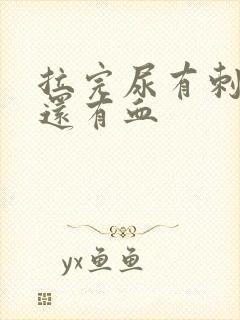 拉完尿有刺
還有血
yx鱼鱼